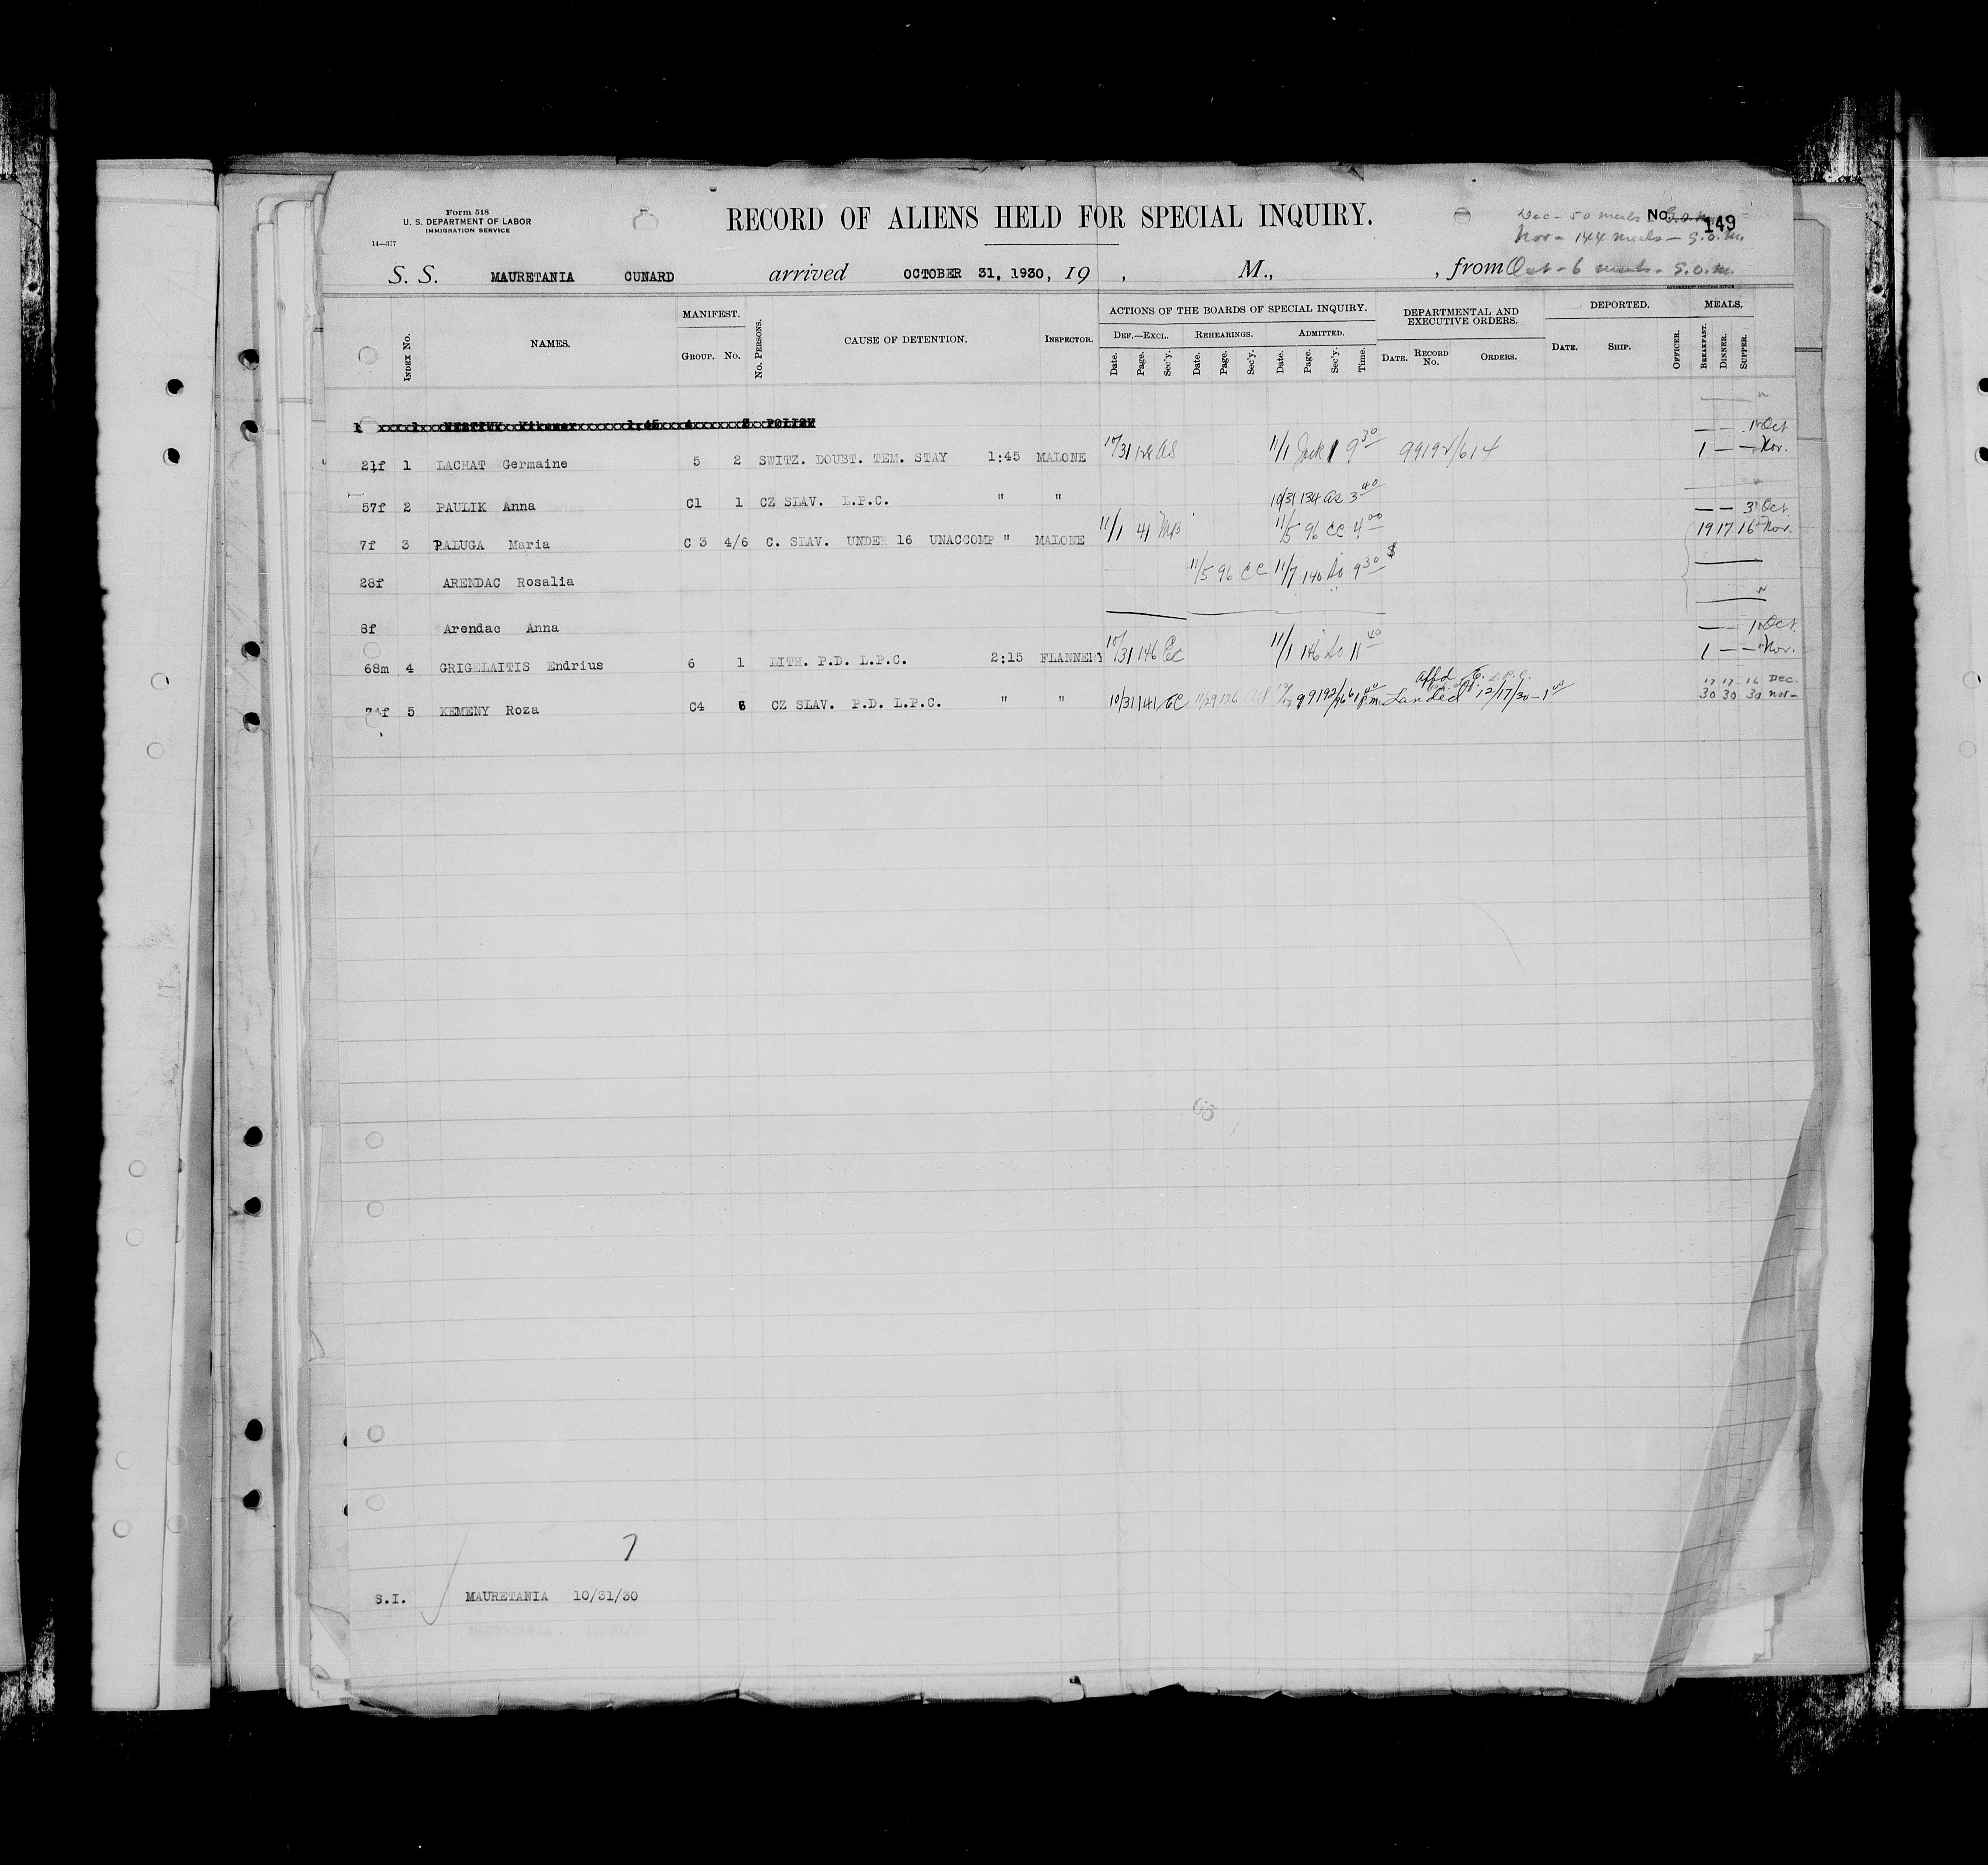 Form 518
U. S. DEPARTMENT OF LABOR
IMMIGRATION SERVICE
14—377
RECORD OF ALIENS HELD FOR SPECIAL INQUIRY.
Dec - 50 meals No. 149
Nov - 144 meals - S.O.M.
S. S. MAURETANIA CUNARD arrived OCTOBER 31, 1930, 19 , M., , from Oct - 6 meals - S.O.M.
INDEX No. NAMES. MANIFEST. GROUP. No. No. PERSONS. CAUSE OF DETENTION. INSPECTOR. ACTIONS OF THE BOARDS OF SPECIAL INQUIRY. DEPARTMENTAL AND EXECUTIVE ORDERS. DEPORTED. MEALS.
DEF.—EXCL. REHEARINGS. ADMITTED.
Date. Page. Sec'y. Date. Page. Sec'y. Date. Page. Sec'y. Time. DATE. RECORD No. ORDERS. DATE. SHIP. OFFICER. BREAKFAST. DINNER. SUPPER.
1 1:45 POLISH
— — 1 Oct
21f 1 LACHAT Germaine 5 2 SWITZ. DOUBT. TEM. STAY 1:45 MALONE 10/31 AS 11/1 9 30 99192/614 1 — — Nov.
57f 2 PAULIK Anna C1 1 CZ SLAV. L.P.C. " " 10/31 134 AS 3 40
— — 3 Oct.
7f 3 PALUGA Maria C 3 4/6 C. SLAV. UNDER 16 UNACCOMP " MALONE 11/1 41 MB 11/5 96 CC 4 00 19 17 16 Nov.
28f ARENDAC Rosalia 11/5 96 CC 11/7 140 9 30 $
8f Arendac Anna
— — 1 Oct.
68m 4 GRIGELAITIS Endrius 6 1 LITH. P.D. L.P.C. 2:15 FLANNERY 10/31 146 EC 11/1 146 11 40 1 — — Nov.
affd L.P.C. 17 17 16 Dec.
74f 5 KEMENY Roza C4 6 CZ SLAV. P.D. L.P.C. " " 10/31 141 EC 11/29 126 99192/96 1 00 P.m. Landed 12/17/30 - 1 00 30 30 30 Nov-
65
7
S.I. MAURETANIA 10/31/30